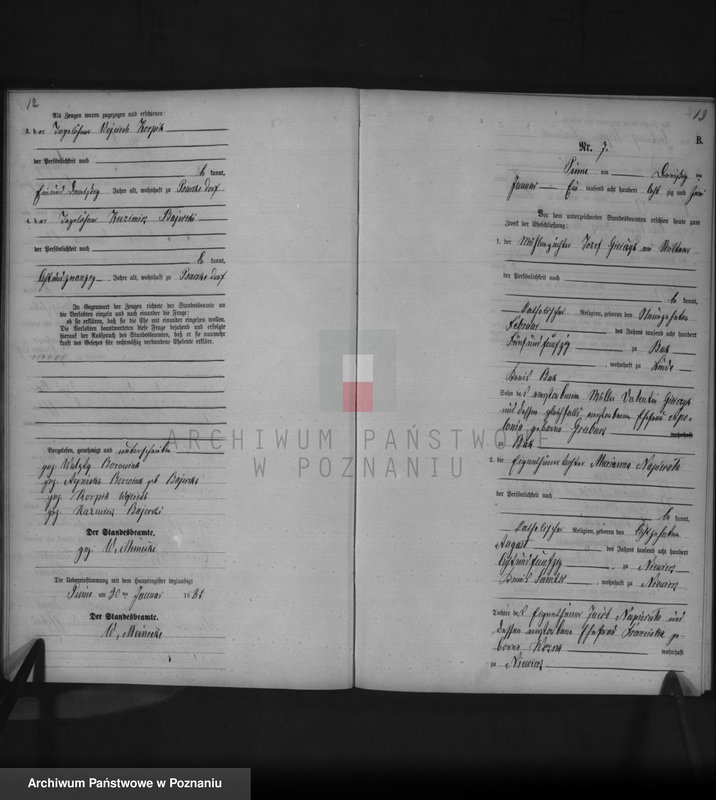 12
Als Zeugen waren zugezogen und erschienen:
3. der Tagelöhner Wojciech Korpik
der Persönlichkeit nach
be kannt,
Jahre alt, wohnhaft zu
4. der Tagelöhner Kazimier Bajerski
der Persönlichkeit nach
be kannt,
Achtundzwanzig Jahre alt, wohnhaft zu
In Gegenwart der Zeugen richtete der Standesbeamte an
die Verlobten einzeln und nach einander die Frage:
ob sie erklären, daß sie die Ehe mit einander eingehen wollen.
Die Verlobten beantworteten diese Frage bejahend und erfolgte
hierauf der Ausspruch des Standesbeamten, daß er sie nunmehr
kraft des Gesetzes für rechtmäßig verbundene Eheleute erkläre.
Vorgelesen, genehmigt und unterschrieben
gez. Borowiak
gez. Agnieska Borowiak geb Bajerska
gez. Korpik Wojciech
gez. Kazimier Bajerski
Der Standesbeamte.
gez. W. Meinecke
Die Uebereinstimmung mit dem Hauptregister beglaubigt
Pinne am 30 ten Januar 1881
Der Standesbeamte.
W. Meinecke
13
B.
Nr. 7.
Pinne am Dreißig ten
Januar Ein tausend acht hundert acht zig und
Vor dem unterzeichneten Standesbeamten erschien heute zum
Zweck der Eheschließung:
1. der Josef
der Persönlichkeit nach
be kannt,
katholischer Religion, geboren den
Februar des Jahres tausend acht hundert
fünfundfünfzig zu Buk
, wohnhaft zu Linde
Kreis Buk
Sohn des verstorbenen Müller Valentin
und dessen gleichfalls verstorbenen Ehefrau Apo-
lonia geborne Grabarz wohnhaft
zu Buk
2. die Eigenthümertochter Marianna Napierała
der Persönlichkeit nach
be kannt,
katholischer Religion, geboren den achtzehnten
August des Jahres tausend acht hundert
achtundfünfzig zu Niewierz
Kreis Samter, wohnhaft zu Niewierz
Tochter des Eigenthümer Jacob Napierała und
dessen verstorbene Ehefrau Franciska ge-
borne wohnhaft
zu Niewierz
ARCHIWUM PAŃSTWOWE
W POZNANIU
Archiwum Państwowe w Poznaniu